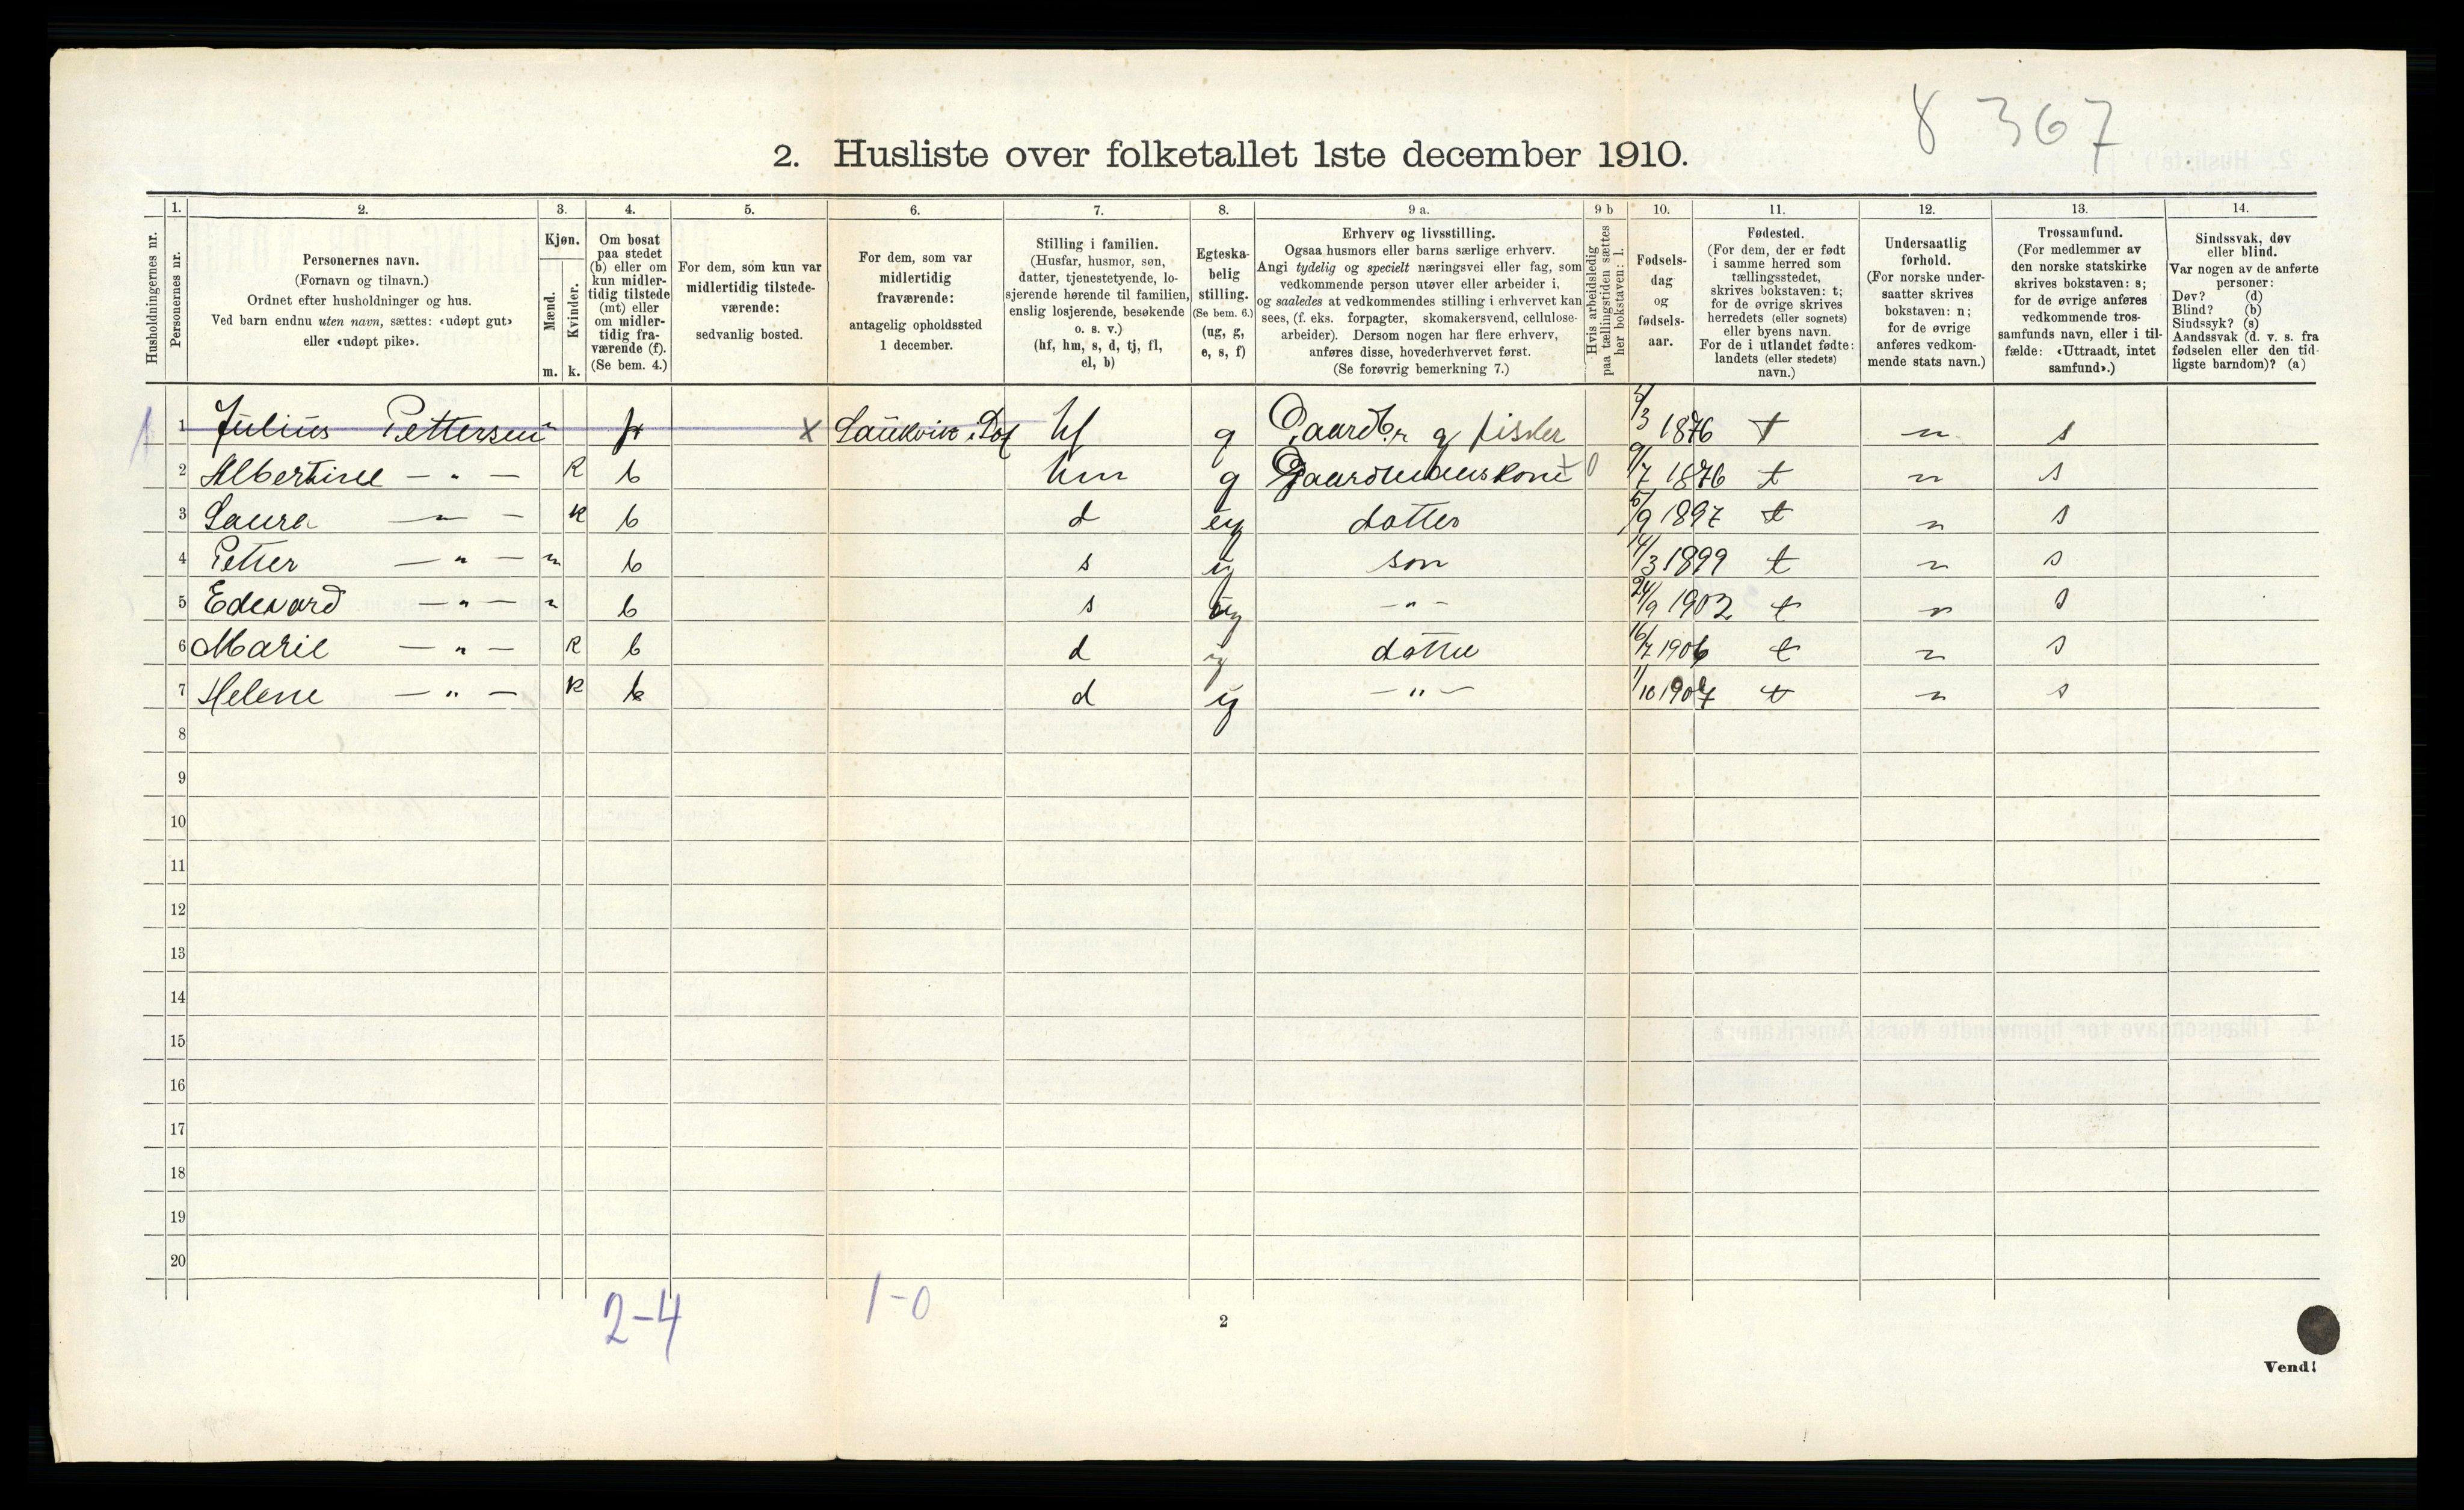 8 367
2. Husliste over folketallet 1ste december 1910.
Husholdningernes nr.
1. Personernes nr.
2. Personernes navn. (Fornavn og tilnavn.) Ordnet efter husholdninger og hus. Ved barn endnu uten navn, sættes: «udøpt gut» eller «udøpt pike».
3. Kjøn. Mænd. m. Kvinder. k.
4. Om bosat paa stedet (b) eller om kun midler- tidig tilstede (mt) eller om midler- tidig fra- værende (f). (Se bem. 4.)
5. For dem, som kun var midlertidig tilstede- værende: sedvanlig bosted.
6. For dem, som var midlertidig fraværende: antagelig opholdssted 1 december.
7. Stilling i familien. (Husfar, husmor, søn, datter, tjenestetyende, lo- sjerende hørende til familien, enslig losjerende, besøkende o. s. v.) (hf, hm, s, d, tj, fl, el, b)
8. Egteska- belig stilling. (Se bem. 6.) (ug, g, e, s, f)
9 a. Erhverv og livsstilling. Ogsaa husmors eller barns særlige erhverv. Angi tydelig og specielt næringsvei eller fag, som vedkommende person utøver eller arbeider i, og saaledes at vedkommendes stilling i erhvervet kan sees, (f. eks. forpagter, skomakersvend, cellulose- arbeider). Dersom nogen har flere erhverv, anføres disse, hovederhvervet først. (Se forøvrig bemerkning 7.)
9 b Hvis arbeidsledig paa tællingstiden sættes her bokstaven: l.
10. Fødsels- dag og fødsels- aar.
11. Fødested. (For dem, der er født i samme herred som tællingsstedet, skrives bokstaven: t; for de øvrige skrives herredets (eller sognets) eller byens navn. For de i utlandet fødte: landets (eller stedets) navn.)
12. Undersaatlig forhold. (For norske under- saatter skrives bokstaven: n; for de øvrige anføres vedkom- mende stats navn.)
13. Trossamfund. (For medlemmer av den norske statskirke skrives bokstaven: s; for de øvrige anføres vedkommende tros- samfunds navn, eller i til- fælde: «Uttraadt, intet samfund».)
14. Sindssvak, døv eller blind. Var nogen av de anførte personer: Døv? (d) Blind? (b) Sindssyk? (s) Aandssvak (d. v. s. fra fødselen eller den tid- ligste barndom)? (a)
1 1 Julius Pettersen m f x Laukvik i Dof hf g Gaardbr og fisker /3 1876 t n s
2 Albertine — " — K b hm g Gaardmanskone + 0 9/7 1876 t n s
3 Laura — " — K b d ug datter 5/9 1897 t n s
4 Petter — " — m b s ug son 14/3 1899 t n s
5 Edevard — " — m b s ug — " — 24/9 1902 t n s
6 Marie — " — K b d ug datter 16/7 1906 t n s
7 Helene — " — K b d ug — " — 11/10 1907 t n s
8
9
10
11
12
13
14
15
16
17
18
19
20
2-4 1-0
2
Vend!